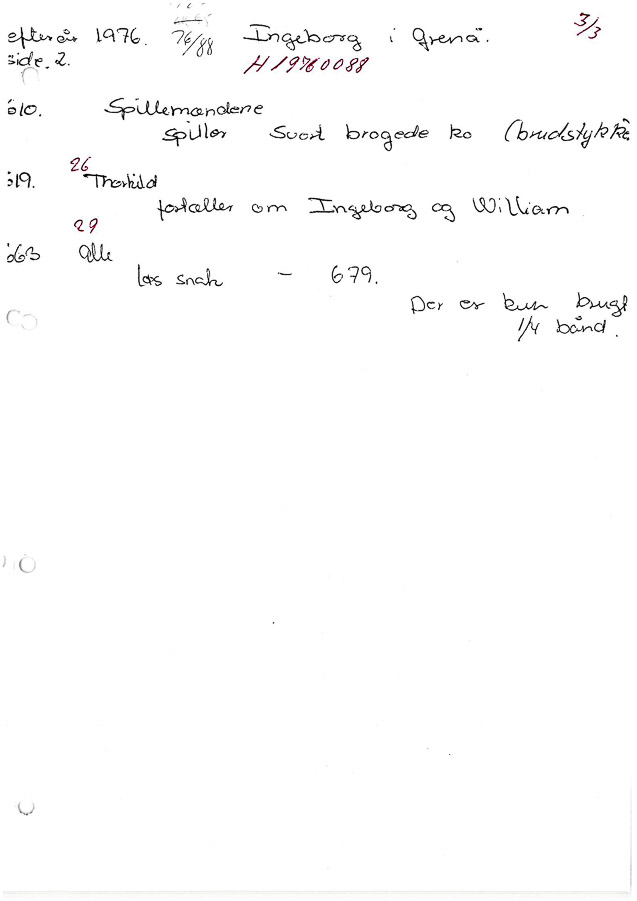 3/3
efterår 1976. 76/88 Ingeborg i Grenå.
side. 2. H 19760088
610. Spillemændene
spiller Svort brogede ko (brudstykke
26
619. Thorkild
fortæller om Ingeborg og William
29
663 alle
løs snak - 679.
Der er kun brugt
1/4 bånd.